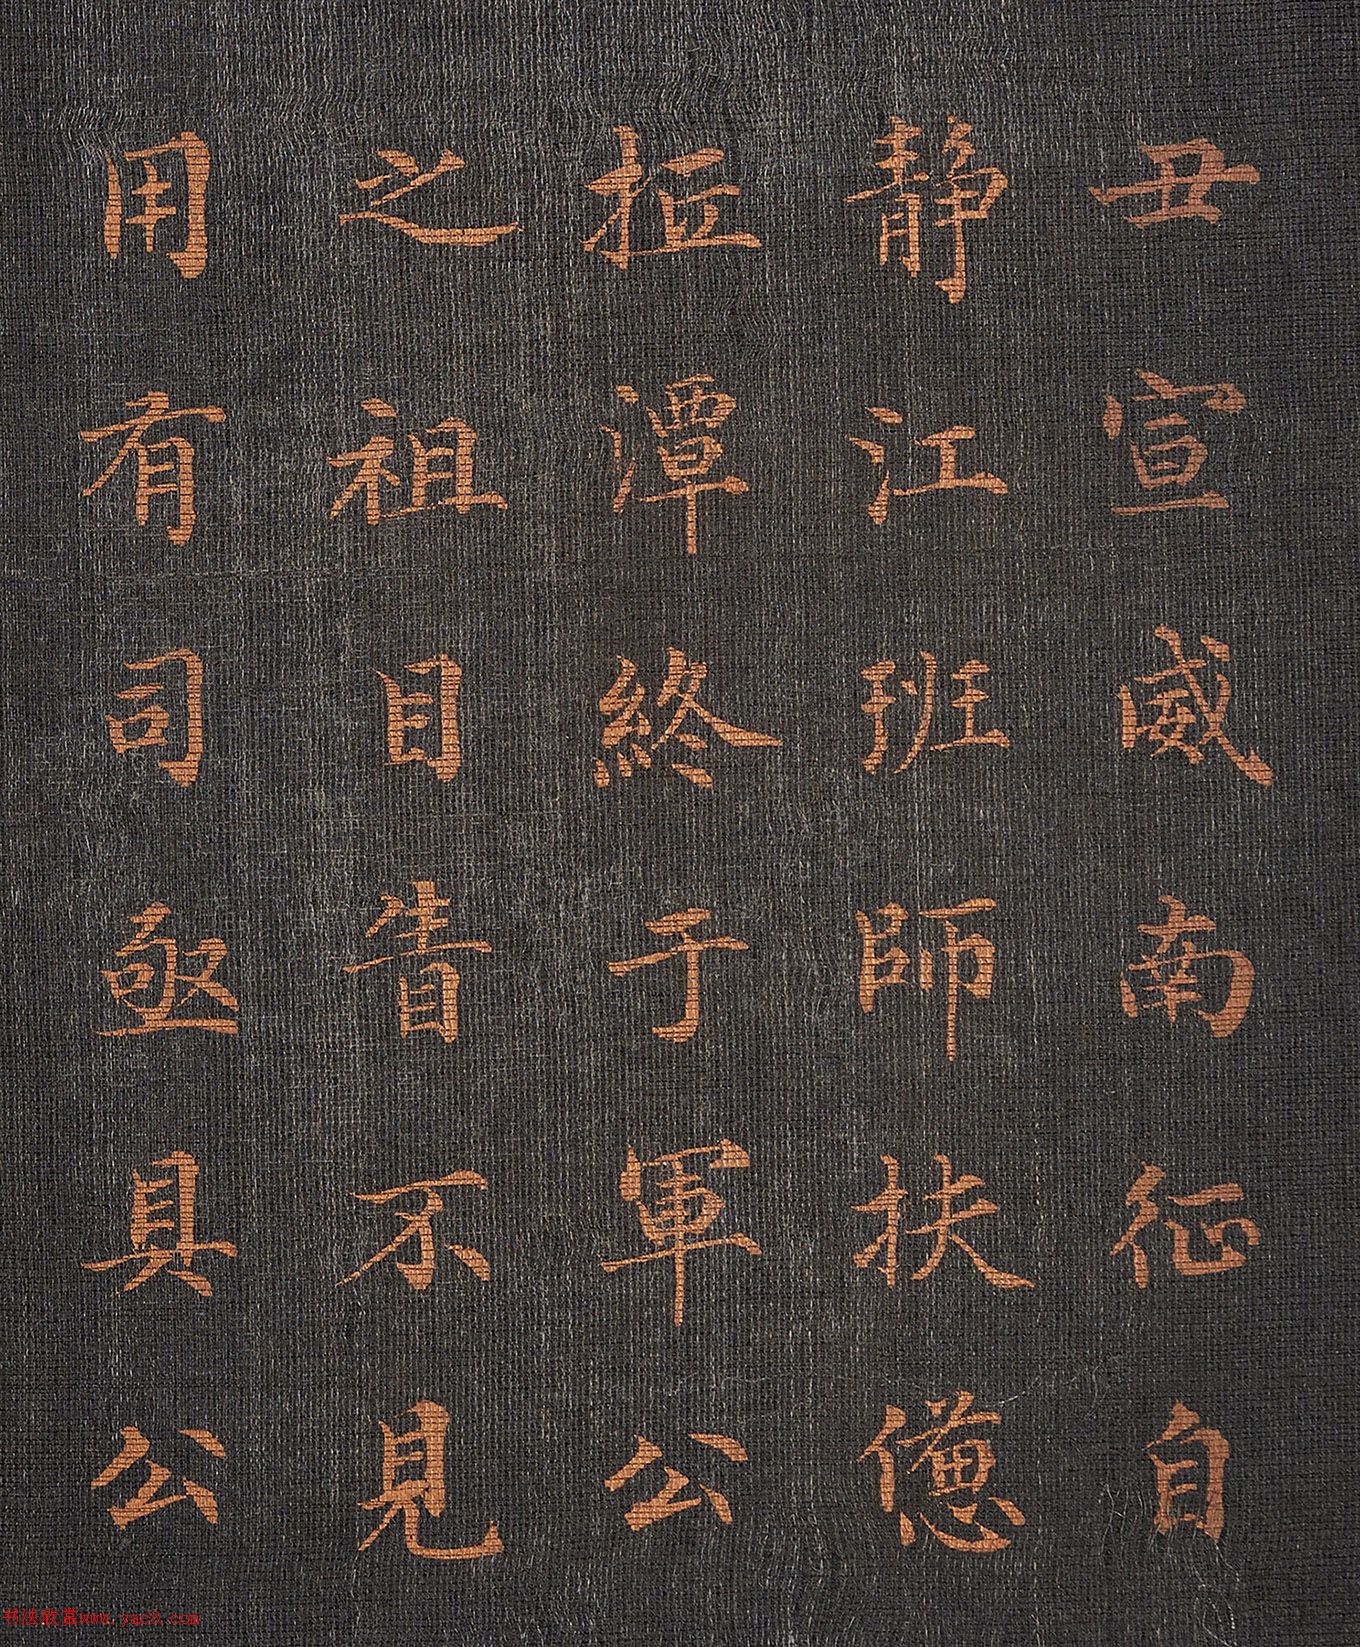 丑宣威南征自
静江班師扶憊
抵潭終于軍公
之祖目眚不見
用有司亟具公
书法欣赏www.yac8.com